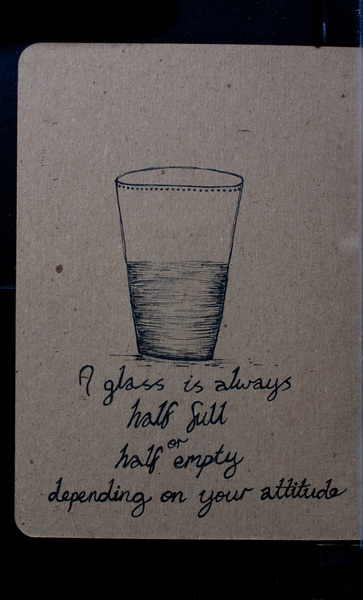 A glass is always
half full
or
half empty
depending on your attitude